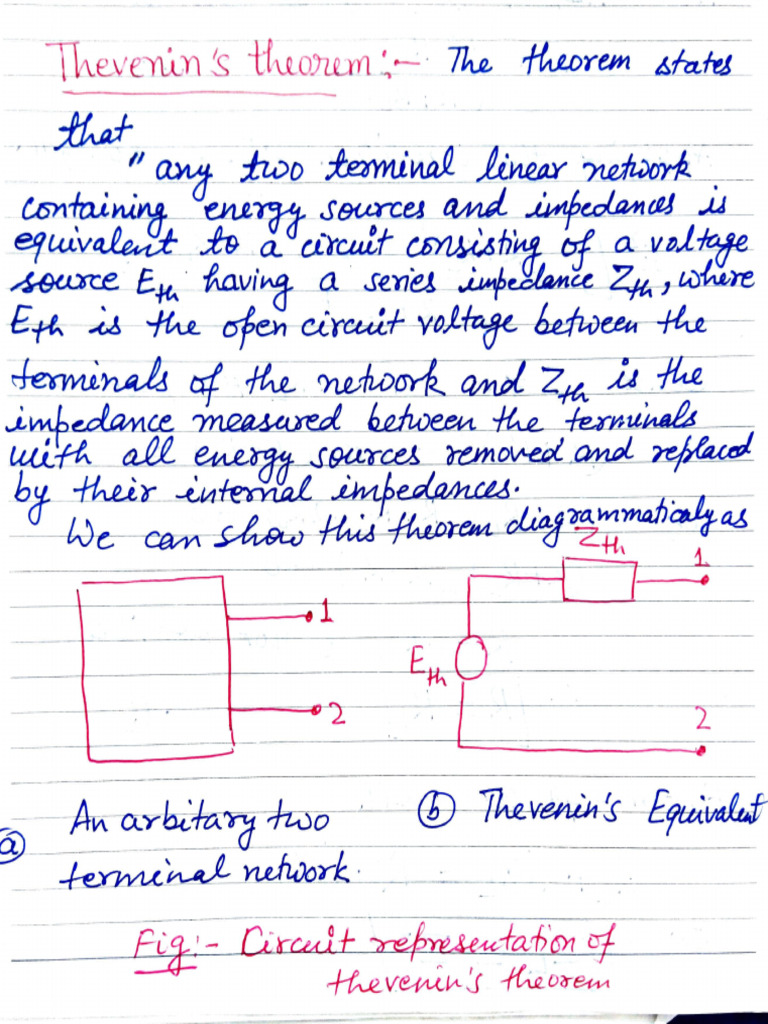 Thevenin's theorem:- The theorem states
that
" any two terminal linear network
containing energy sources and impedances is
equivalent to a circuit consisting of a voltage
source Eth having a series impedance Zth, where
Eth is the open circuit voltage between the
terminals of the network and Zth is the
impedance measured between the terminals
with all energy sources removed and replaced
by their internal impedances.
We can show this theorem diagrammaticaly as
1
2
Zth
1
Eth
2
(a) An arbitary two
terminal network.
(b) Thevenin's Equivalent
Fig:- Circuit representation of
thevenin's theorem